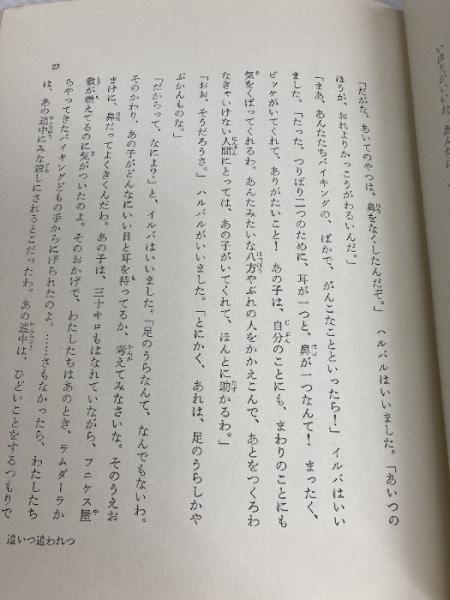 「だがな、あいてのやつは、鼻をなくしたんだぞ。」ハルバルはいいました。「あいつの
ほうが、おれよりかっこうがわるいんだ。」
「まあ、あんたたちバイキングの、ばかで、がんこなことといったら！」イルバはいい
ました。「たった、つりばり二つのために、耳が一つと、鼻が一つなんて！　まったく、
ビッケがいてくれて、ありがたいこと！　あの子は、自分のことにも、まわりのことにも
気をくばってくれるわ。あんたみたいな八方やぶれの人をかかえこんで、あとをつくろわ
なきゃいけない人間にとっては、あの子がいてくれて、ほんとに助かるわ。」
「おお、そうだろうさ。」ハルバルがいいました。「とにかく、あれは、足のうらしかや
ぶかんものな。」
「だからって、なによ？」と、イルバはいいました。「足のうらなんて、なんでもないわ。
そのかわり、あの子がどんなにいい目と耳を持ってるか、考えてみなさいな。そのうえお
まけに、鼻だってよくきくんだわ。あの子は、三十キロもはなれていながら、フニケス屋
敷が燃えてるのに気がついたのよ。そのおかげで、わたしたちはあのとき、ラムダーラか
らやってきたバイキングどもの手からにげられたのよ。……さもなかったら、わたしたち
は、あの連中にみな殺しにされるとこだったわ。あの連中は、ひどいことをするつもりで
23
追いつ追われつ